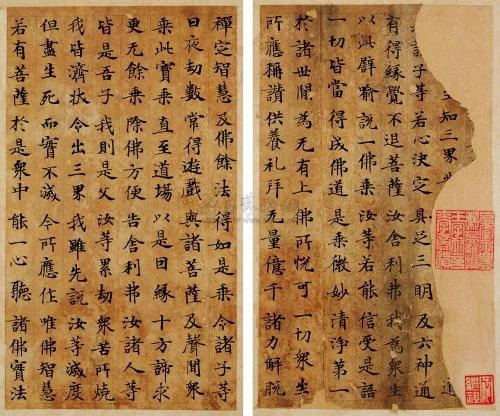 知三界
諸子等若心決定具足三明及六神通
有得緣覺不退菩薩汝舍利弗我為衆生
以此譬喻說一佛乘汝等若能信受是語
一切皆當得成佛道是乘微妙清淨第一
於諸世間為无有上佛所悅可一切衆生
所應稱讃供養礼拜无量億千諸力解脫
禪定智慧及佛餘法得如是乘令諸子等
日夜劫數常得遊戲與諸菩薩及聲聞衆
乘此寶乘直至道場以是因緣十方諦求
更无餘乘除佛方便告舍利弗汝諸人等
皆是吾子我則是父汝等累劫衆苦所燒
我皆濟拔令出三界我雖先說汝等滅度
但盡生死而實不滅今所應作唯佛智慧
若有菩薩於是衆中能一心聽諸佛實法